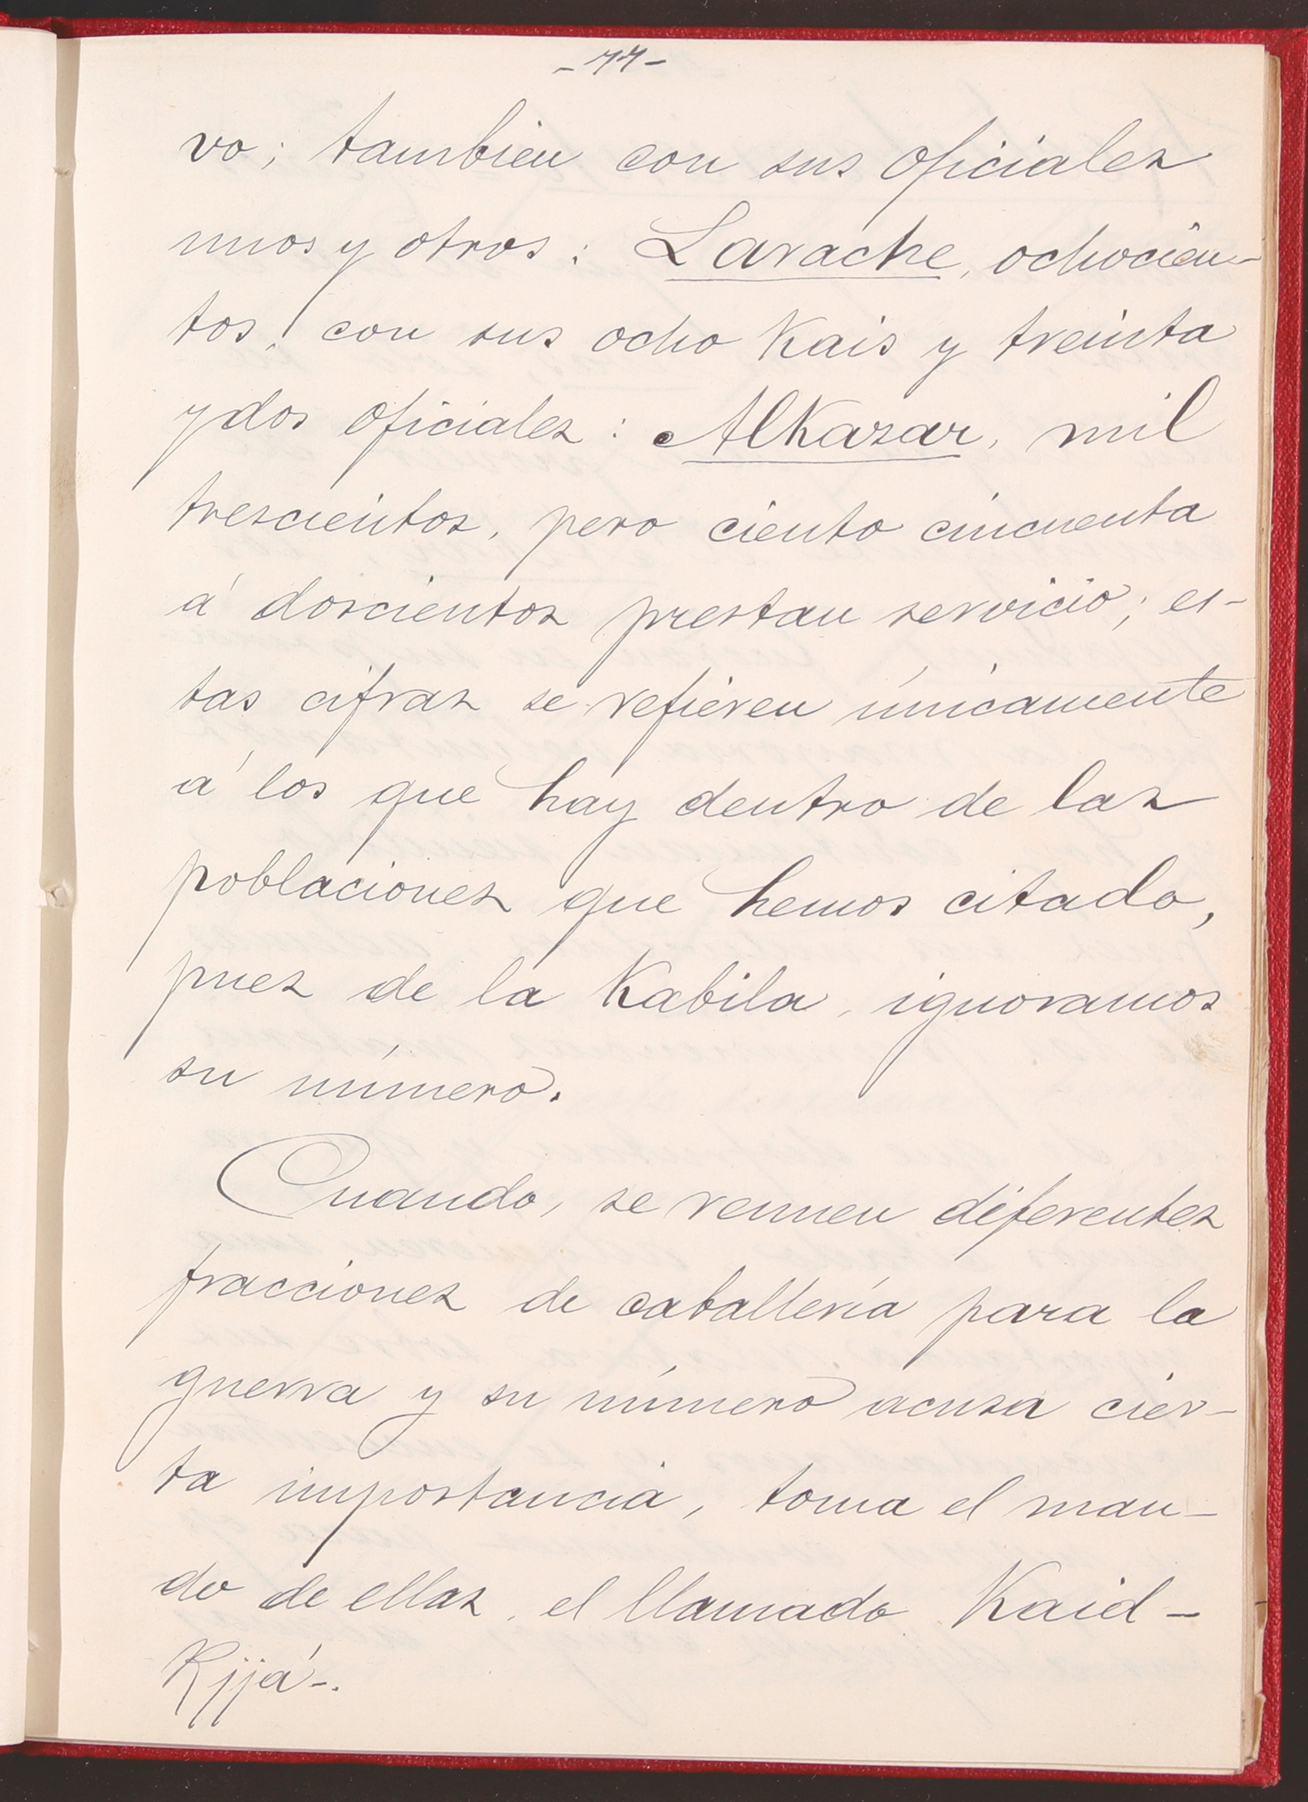 -77-
vo; tambien con sus oficiales
unos y otros: Larache, ochocien-
tos, con sus ocho Kais y treinta
y dos oficiales: AlKazar, mil
trescientos, pero ciento cincuenta
á doscientos prestan servicio; es-
tas cifras se refieren únicamente
á los que hay dentro de las
poblaciones que hemos citado,
pues de la Kabila, ignoramos
su número.
Cuando, se reunen diferentes
fracciones de caballería para la
guerra y su número acusa cier-
ta importancia, toma el man-
do de ellas, el llamado Kaid-
Rjjá-.